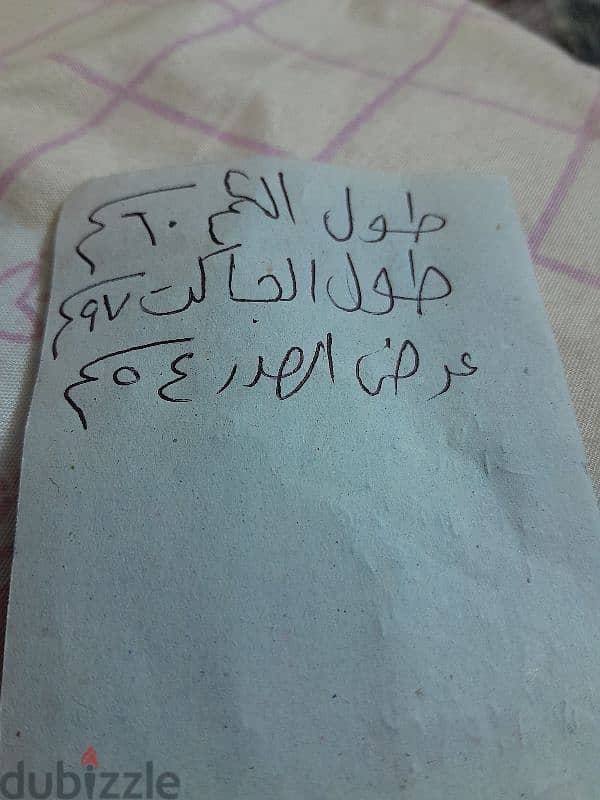 طول الكم ٦٠سم
طول الجاكت ٩٧سم
عرض الصدر ٤٥سم
dubizzle